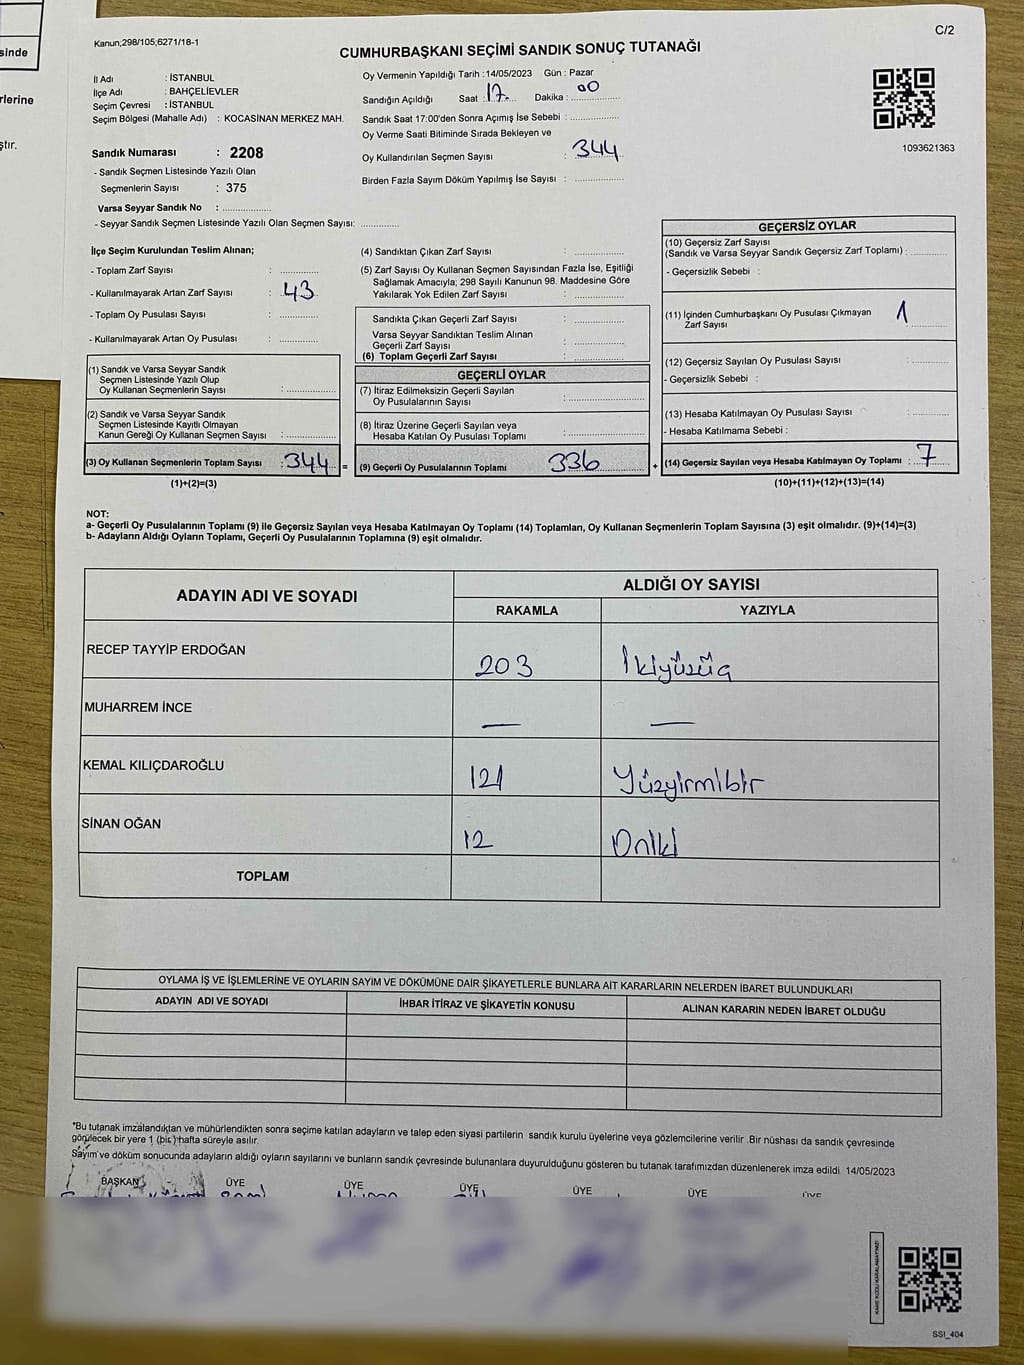 sinde
rlerine
ştır.
Kanun;298/105,6271/18-1
C/2
CUMHURBAŞKANI SEÇİMİ SANDIK SONUÇ TUTANAĞI
İl Adı : İSTANBUL
İlçe Adı : BAHÇELİEVLER
Seçim Çevresi : İSTANBUL
Seçim Bölgesi (Mahalle Adı) : KOCASİNAN MERKEZ MAH.
Sandık Numarası : 2208
- Sandık Seçmen Listesinde Yazılı Olan
Seçmenlerin Sayısı : 375
Varsa Seyyar Sandık No : ..............
- Seyyar Sandık Seçmen Listesinde Yazılı Olan Seçmen Sayısı: ............
Oy Vermenin Yapıldığı Tarih :14/05/2023 Gün : Pazar
Sandığın Açıldığı Saat : 17 Dakika : 00
Sandık Saat 17:00'den Sonra Açımış İse Sebebi : ..............
Oy Verme Saati Bitiminde Sırada Bekleyen ve
Oy Kullandırılan Seçmen Sayısı : 344
Birden Fazla Sayım Döküm Yapılmış İse Sayısı : ..............
1093621363
İlçe Seçim Kurulundan Teslim Alınan;
- Toplam Zarf Sayısı : ............
- Kullanılmayarak Artan Zarf Sayısı : 43
- Toplam Oy Pusulası Sayısı : ............
- Kullanılmayarak Artan Oy Pusulası : ............
(1) Sandık ve Varsa Seyyar Sandık
Seçmen Listesinde Yazılı Olup
Oy Kullanan Seçmenlerin Sayısı : ..............
(2) Sandık ve Varsa Seyyar Sandık
Seçmen Listesinde Kayıtlı Olmayan
Kanun Gereği Oy Kullanan Seçmen Sayısı : ..............
(3) Oy Kullanan Seçmenlerin Toplam Sayısı : 344 =
(1)+(2)=(3)
(4) Sandıktan Çıkan Zarf Sayısı : ..............
(5) Zarf Sayısı Oy Kullanan Seçmen Sayısından Fazla İse, Eşitliği
Sağlamak Amacıyla; 298 Sayılı Kanunun 98. Maddesine Göre
Yakılarak Yok Edilen Zarf Sayısı : ..............
Sandıkta Çıkan Geçerli Zarf Sayısı : ..............
Varsa Seyyar Sandıktan Teslim Alınan
Geçerli Zarf Sayısı : ..............
(6) Toplam Geçerli Zarf Sayısı : ..............
GEÇERLİ OYLAR
(7) İtiraz Edilmeksizin Geçerli Sayılan
Oy Pusulalarının Sayısı : ..............
(8) İtiraz Üzerine Geçerli Sayılan veya
Hesaba Katılan Oy Pusulası Toplamı : ..............
(9) Geçerli Oy Pusulalarının Toplamı 336 +
GEÇERSİZ OYLAR
(10) Geçersiz Zarf Sayısı
(Sandık ve Varsa Seyyar Sandık Geçersiz Zarf Toplamı) : ..........
- Geçersizlik Sebebi :
(11) İçinden Cumhurbaşkanı Oy Pusulası Çıkmayan
Zarf Sayısı 1
(12) Geçersiz Sayılan Oy Pusulası Sayısı : ..........
- Geçersizlik Sebebi :
(13) Hesaba Katılmayan Oy Pusulası Sayısı : ..........
- Hesaba Katılmama Sebebi :
(14) Geçersiz Sayılan veya Hesaba Katılmayan Oy Toplamı : 7
(10)+(11)+(12)+(13)=(14)
NOT:
a- Geçerli Oy Pusulalarının Toplamı (9) ile Geçersiz Sayılan veya Hesaba Katılmayan Oy Toplamı (14) Toplamları, Oy Kullanan Seçmenlerin Toplam Sayısına (3) eşit olmalıdır. (9)+(14)=(3)
b- Adayların Aldığı Oyların Toplamı, Geçerli Oy Pusulalarının Toplamına (9) eşit olmalıdır.
ADAYIN ADI VE SOYADI
ALDIĞI OY SAYISI
RAKAMLA YAZIYLA
RECEP TAYYİP ERDOĞAN 203 İkiyüzüç
MUHARREM İNCE — —
KEMAL KILIÇDAROĞLU 121 Yüzyirmibir
SİNAN OĞAN 12 Oniki
TOPLAM
OYLAMA İŞ VE İŞLEMLERİNE VE OYLARIN SAYIM VE DÖKÜMÜNE DAİR ŞİKAYETLERLE BUNLARA AİT KARARLARIN NELERDEN İBARET BULUNDUKLARI
ADAYIN ADI VE SOYADI İHBAR İTİRAZ VE ŞİKAYETİN KONUSU ALINAN KARARIN NEDEN İBARET OLDUĞU
*Bu tutanak imzalandıktan ve mühürlendikten sonra seçime katılan adayların ve talep eden siyasi partilerin sandık kurulu üyelerine veya gözlemcilerine verilir .Bir nüshası da sandık çevresinde
görülecek bir yere 1 (bir) hafta süreyle asılır.
Sayım ve döküm sonucunda adayların aldığı oyların sayılarını ve bunların sandık çevresinde bulunanlara duyurulduğunu gösteren bu tutanak tarafımızdan düzenlenerek imza edildi. 14/05/2023
BAŞKAN ÜYE ÜYE ÜYE ÜYE ÜYE ÜYE
SSI_404